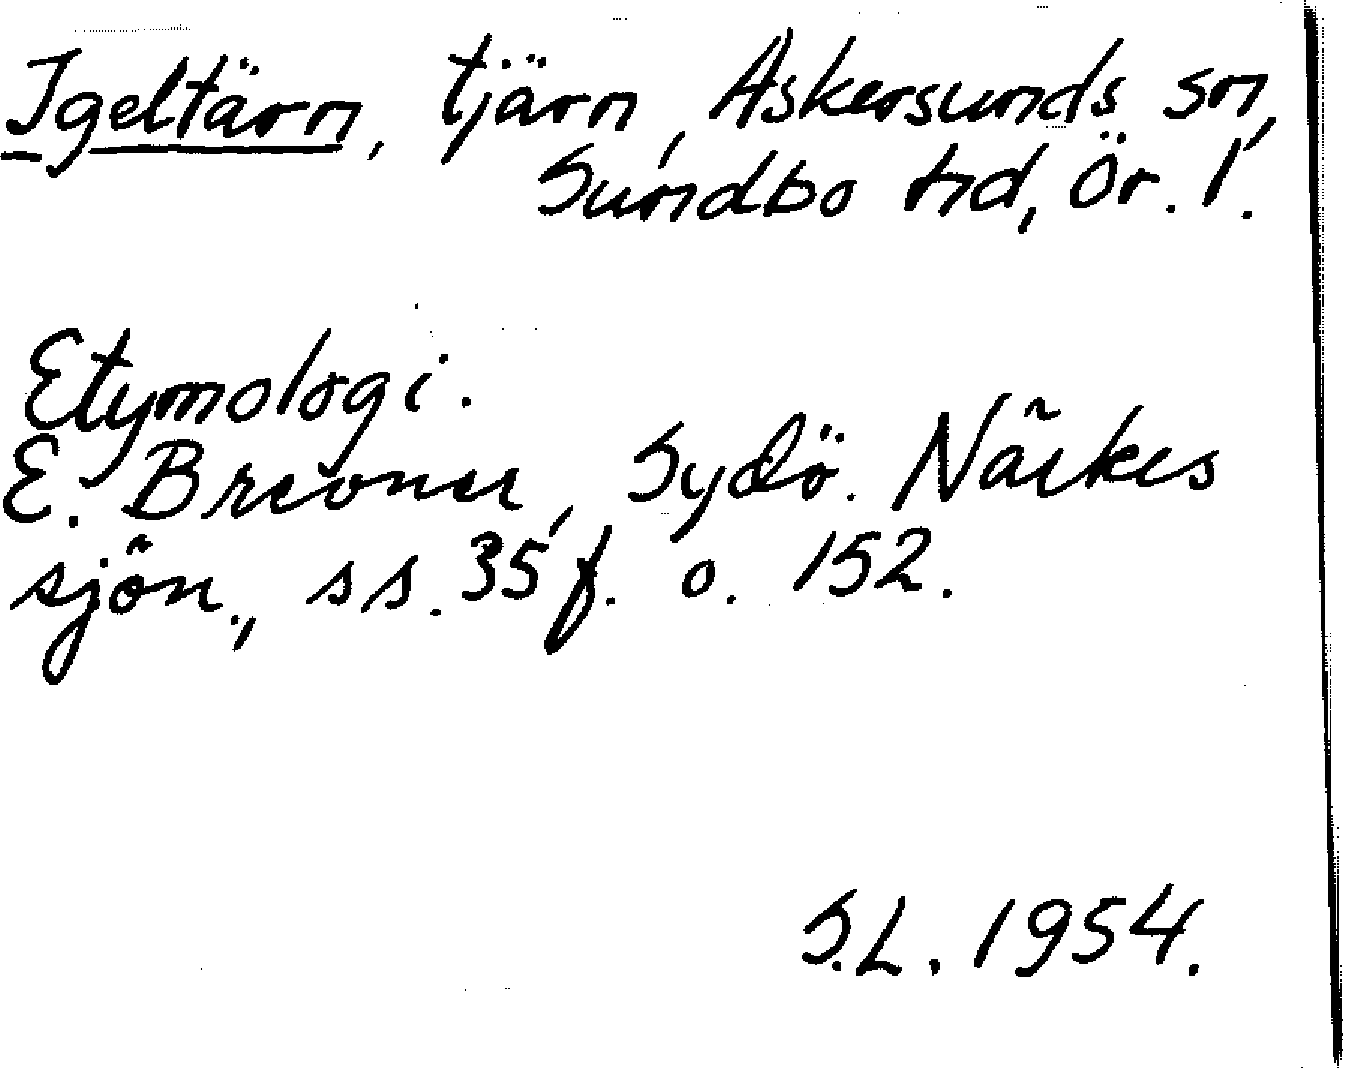 Igeltärn, tjärn, Askersunds sn,
Sundbo hd, Ör. l.
Etymologi.
E. Brevner, Sydö. Närkes
sjön., ss. 35 f. o. 152.
S.L. 1954.